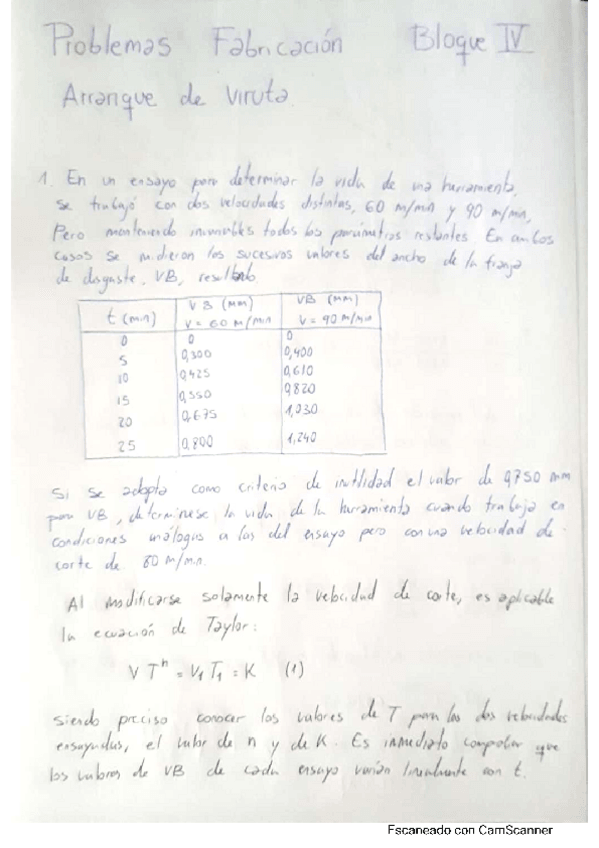 Problemas Fabricación Bloque IV
Arranque de Viruta
1. En un ensayo para determinar la vida de una herramienta,
se trabajó con dos velocidades distintas, 60 m/min y 90 m/min,
Pero manteniendo invariables todos los parámetros restantes. En ambos
casos se midieron los sucesivos valores del ancho de la franja
de desgaste, VB, resultando
t (min) VB (mm) V = 60 m/min VB (mm) V = 90 m/min
0 0 0
5 0,300 0,400
10 0,425 0,610
15 0,550 0,820
20 0,675 1,030
25 0,800 1,240
Si se adopta como criterio de inutilidad el valor de 0,750 mm
para VB, determinese la vida de la herramienta cuando trabaja en
condiciones análogas a las del ensayo pero con una velocidad de
corte de 80 m/min.
Al modificarse solamente la velocidad de corte, es aplicable
la ecuación de Taylor:
V T^n = V1 T1 = K (1)
siendo preciso conocer los valores de T para las dos velocidades
ensayadas, el valor de n y de K. Es inmediato comprobar que
los valores de VB de cada ensayo varían linealmente con t.
Escaneado con CamScanner